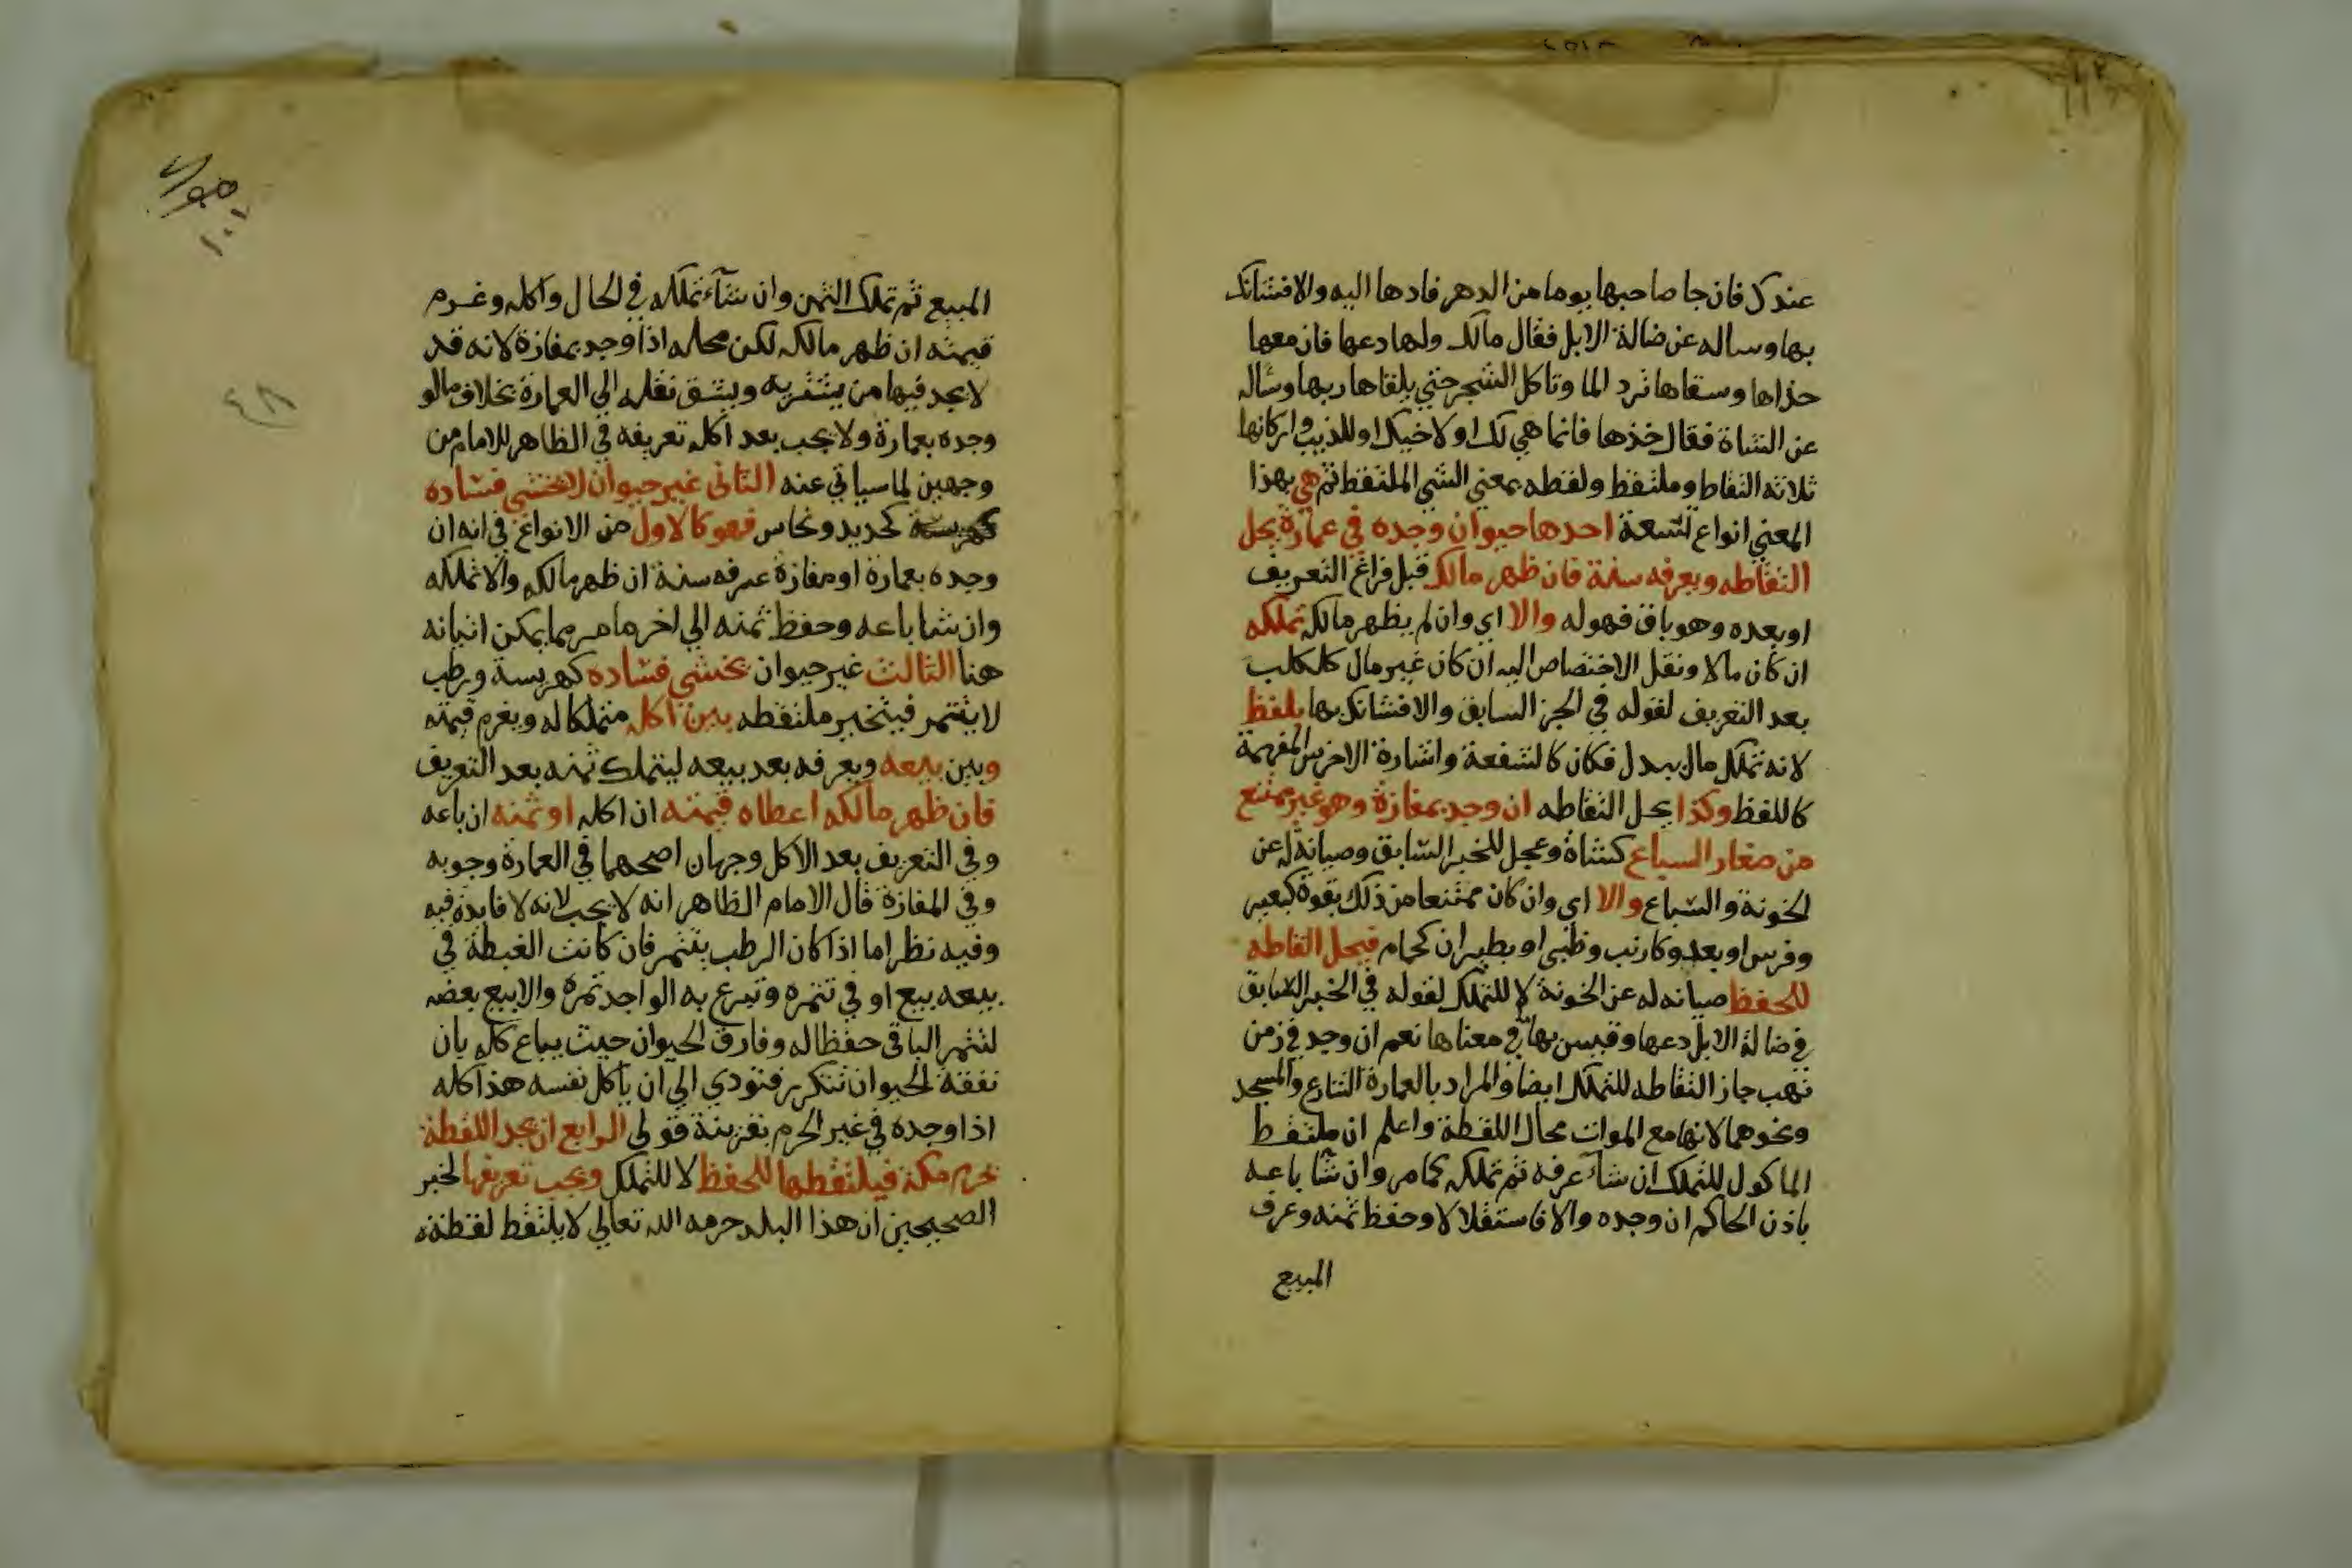 عندك فان جا صاحبها يوما من الدهر فادها اليه والا فشانك
بها وساله عن ضالة الابل فقال مالك ولها دعها فان معها
حذاها وسقاها ترد الما وتاكل الشجر حتي يلقاها ربها وساله
عن الشاة فقال خذها فانما هي لك او لاخيك او للذيب واركانها
ثلاثة التقاط وملتقط ولقطه بمعني الشي الملتقط ثم هي بهذا
المعني انواع تسعة احدها حيوان وجده في عمارة يحل
التقاطه ويعرفه سنة فان ظهر مالكه قبل فراغ التعريف
او بعده وهو باق فهو له والا اي وان لم يظهر مالكه تملكه
ان كان مالا ونقل الاختصاص اليه ان كان غير مال كالكلب
بعد التعريف لقوله في الخبر السابق والا فشانك بها بلفظ
لانه تملك مال ببدل فكان كالشفعة واشارة الاخرس المفهمة
كاللفظ وكذا يحل التقاطه ان وجد بمفازة وهو غير ممتنع
من صغار السباع كشاة وعجل للخبر السابق وصيانة له عن
الخونة والسباع والا اي وان كان ممتنعا من ذلك بقوة كبعير
وفرس او بعدو كارنب وظبي او بطيران كحمام فيحل التقاطه
للحفظ صيانه له عن الخونة لا للتملك لقوله في الخبر السابق
في ضالة الابل دعها وقيس بها ما في معناها نعم ان وجد في زمن
نهب جاز التقاطه للتملك ايضا والمراد بالعمارة الشارع والمسجد
ونحوهما لانها مع الموات محال اللقطة واعلم ان ملتقط
الماكول للتملك ان شاء عرفه ثم تملكه كما مر وان شا باعه
باذن الحاكم ان وجده والا فاستقلالا وحفظ ثمنه وعرف
المبيع
١٠١
٤٨
المبيع ثم تملك الثمن وان شاء تملكه في الحال واكله وغرم
قيمته ان ظهر مالكه لكن محله اذا وجد بمفازة لانه قد
لا يجد فيها من يشتريه ويشق نقله الي العمارة بخلاف ما لو
وجده بعمارة ولا يجب بعد اكله تعريفه في الظاهر للامام من
وجهين لما سياتي عنه الثاني غير حيوان لا يخشي فساده
كحديد ونحاس فهو كالاول من الانواع في انه ان
وجده بعمارة او مفازة عرفه سنة ان ظهر مالكه والا تملكه
وان شا باعه وحفظ ثمنه الي اخر ما مر مما يمكن اتيانه
هنا الثالث غير حيوان يخشي فساده كهريسة ورطب
لا يتتمر فيتخير ملتقطه بين اكله متملكا له ويغرم قيمته
وبين بيعه ويعرفه بعد بيعه ليتملك ثمنه بعد التعريف
فان ظهر مالكه اعطاه قيمته ان اكله او ثمنه ان باعه
وفي التعريف بعد الاكل وجهان اصحهما في العمارة وجوبه
وفي المفازة قال الامام الظاهر انه لا يجب لانه لا فايدة فيه
وفيه نظر اما اذا كان الرطب يتتمر فان كانت الغبطة في
بيعه بيع او في تتمره وتبرع به الواجد تمره والا بيع بعضه
لتتمر الباقي حفظا له وفارق الحيوان حيث يباع كله بان
نفقة الحيوان تتكرر فتودي الي ان ياكل نفسه هذا كله
اذا وجده في غير الحرم بقرينة قولي الرابع ان يجد اللقطة
بحرم مكة فيلتقطها للحفظ لا للتملك ويجب تعريفها لخبر
الصحيحين ان هذا البلد حرمه الله تعالي لا يلتقط لقطته